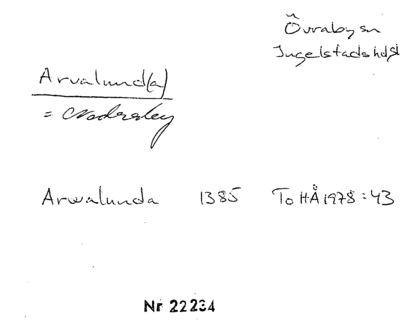 Övrabysn
Ingelstads hd, sk
Arvalund(a)
=
Arwalunda 1385 To HÅ 1978:43
Nr 22234